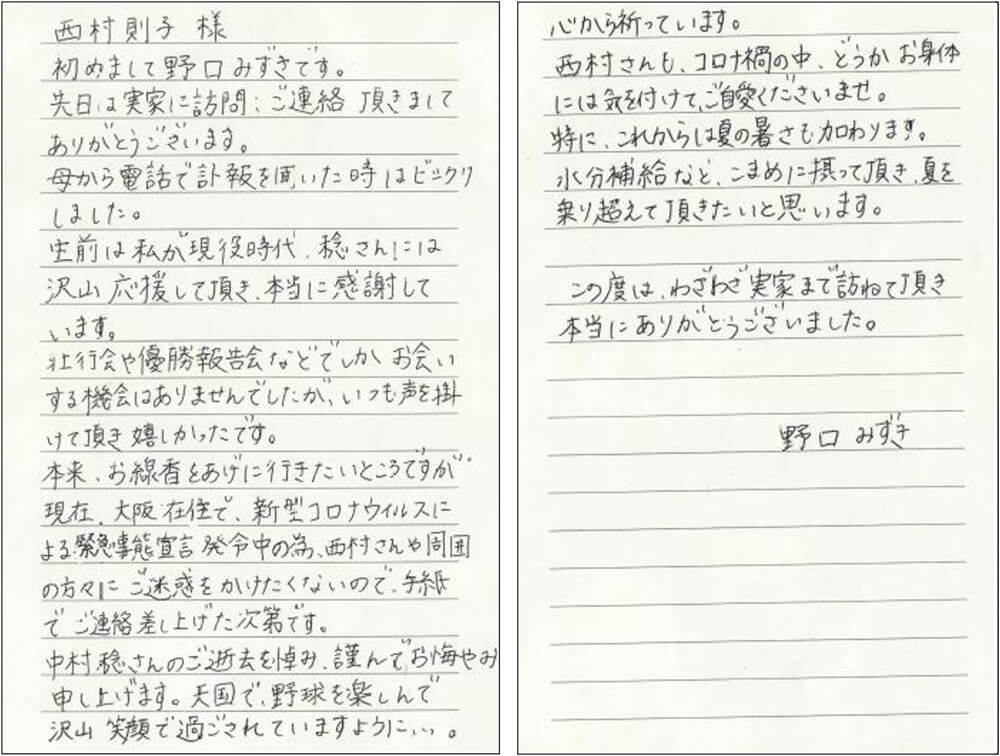 西村則子 様
初めまして野口みずきです。
先日は実家に訪問、ご連絡 頂きまして
ありがとうございます。
母から電話で訃報を聞いた時はビックリ
しました。
生前は私が現役時代、稔さんには
沢山 応援して頂き、本当に感謝して
います。
壮行会や優勝報告会などでしか お会い
する機会はありませんでしたが、いつも声を掛
けて頂き 嬉しかったです。
本来、お線香をあげに行きたいところですが
現在、大阪在住で、新型コロナウィルスに
よる緊急事態宣言 発令中の為、西村さんや周囲
の方々に ご迷惑をかけたくないので、手紙
で ご連絡差し上げた次第です。
中村 稔さんのご逝去を悼み、謹んでお悔やみ
申し上げます。天国で、野球を楽しんで
沢山 笑顔で過ごされていますように、、、。
心から祈っています。
西村さんも、コロナ禍の中、どうか お身体
には気を付けて、ご自愛くださいませ。
特に、これからは夏の暑さも加わります。
水分補給など、こまめに摂って頂き、夏を
乗り超えて頂きたいと思います。
この度は、わざわざ実家まで訪ねて頂き
本当にありがとうございました。
野口 みずき